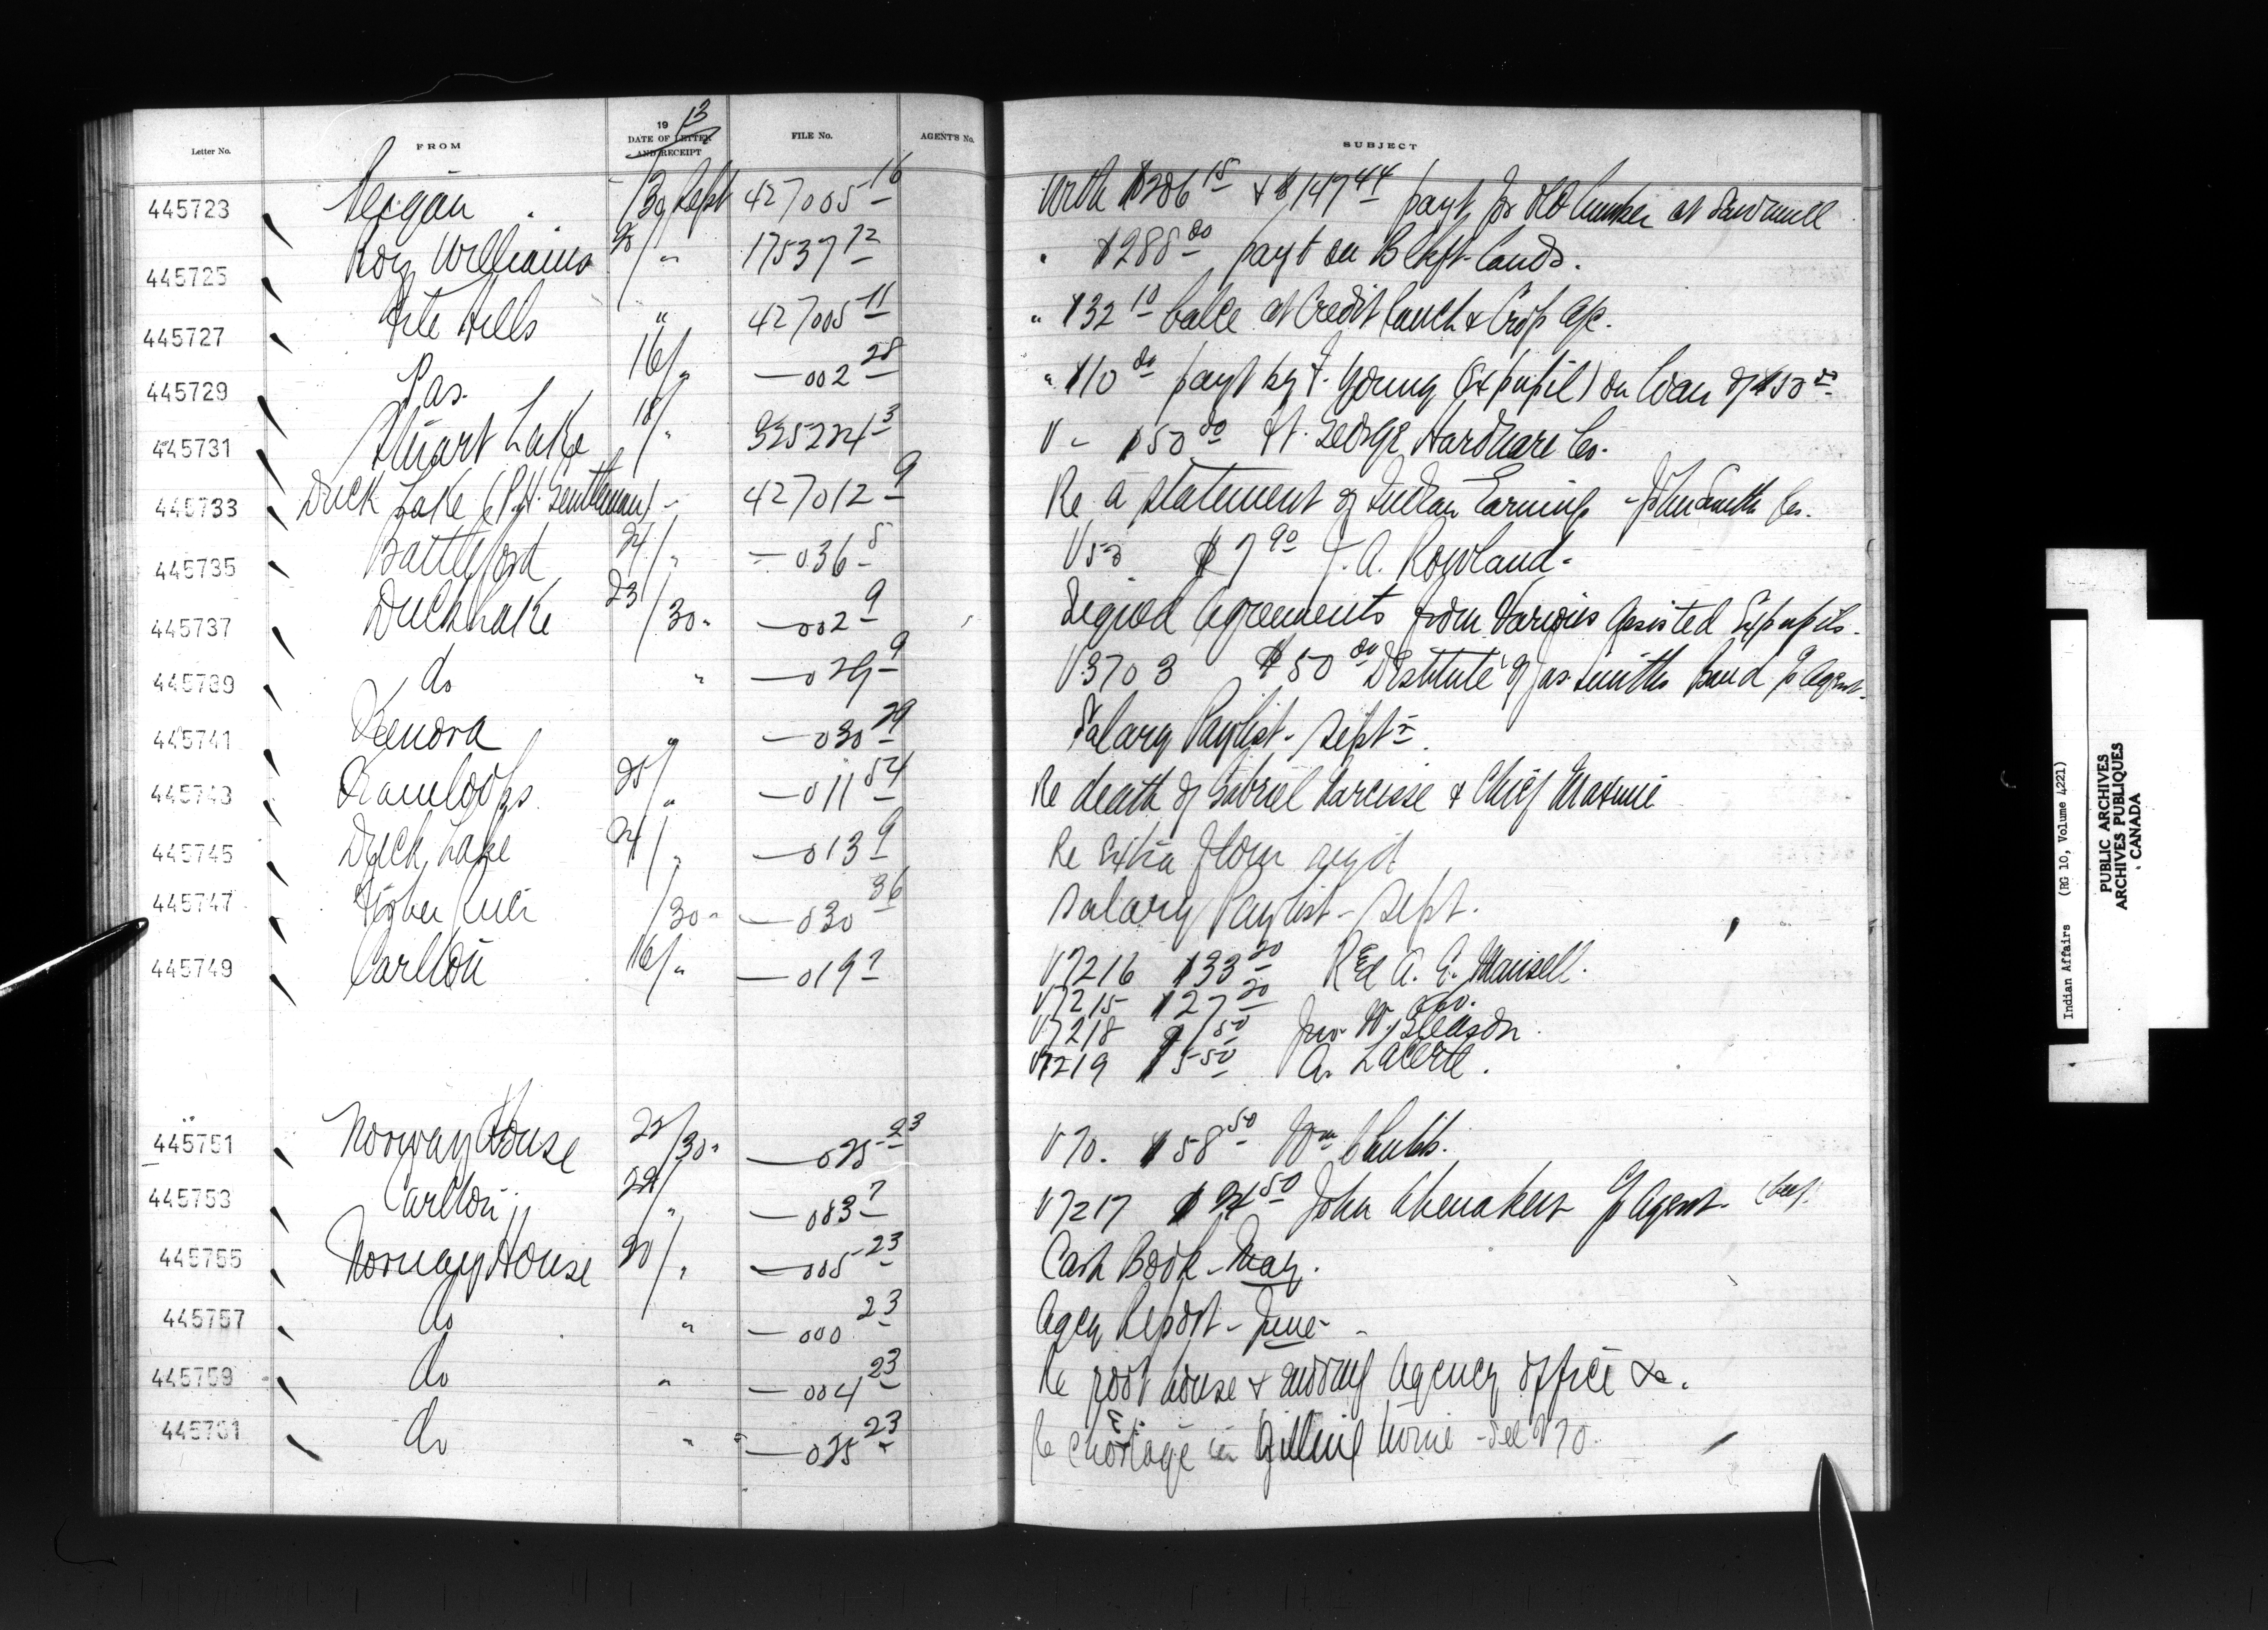 Letter No. FROM 19 13 DATE OF LETTER AND RECEIPT FILE No. AGENT'S No. SUBJECT
445723 Peigan /30 Sept 427005-16 With $206 15 & $147 44 payt for old lumber at Sawmill
445725 Roy Williams " 175397 12 " $288 00 payt on Blkft lands.
445727 File Hills " 427005 11 " $32 10 balce at Credit Ranch & Crop a/c.
445729 Pas. 16/" —002 28 " $10 00 payt by F. Young (Ex pupil) on loan of $50 00
445731 Stuart Lake 18/" 325224 3 V - $50 00 Ft. George Hardware Co.
445733 Duck Lake (P.H. Gentleman) " 427012 9 Re a Statement of Indian Earnings - John Smith Res.
445735 Battleford 24/" —036 8 V53 $7 90 J. A. Rowland.
445737 Duck Lake 23/30 " —002 9 Signed Agreements from Various Assisted Expupils.
445739 do " —029 9 V3703 $50 00 Destitute of Jas. Smiths Band p Agent.
445741 Kenora " —030 29 Salary Paylist - Sept.
445743 Kamloops. 25/" —011 54 Re death of Gabriel Narcisse & Chief Maxime
445745 Duck Lake 24/" —013 9 Re Extra flour reqd
445747 Fisher River /30 " —030 36 Salary Paylist - Sept.
445749 Carlton 16/" —019 7 V7216 $33 20 Rev A. E. Mansell.
V7215 $27 20 do.
V7218 $ 50 Jno. W. Gleason.
V7219 $5 50 A. Lacerte.
445751 Norway House 22/30 " —025-23 V70. $58 50 Wm Chubb.
445753 Carlton 22/" —083 7 V7217 $24 50 John p Agent.
445755 Norway House 20/" —005-23 Cash Book - May.
445757 do " —000 23 Agcy Report - June -
445759 do " —004 23 Re root house & moving Agency office &c.
445761 do " —025 23 Re shortage in twine - See V70.
Indian Affairs (RG 10, Volume 4221)
PUBLIC ARCHIVES
ARCHIVES PUBLIQUES
CANADA